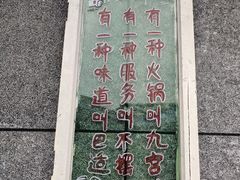 有一种火锅叫九宫
有一种服务叫不摆
有一种味道叫巴适